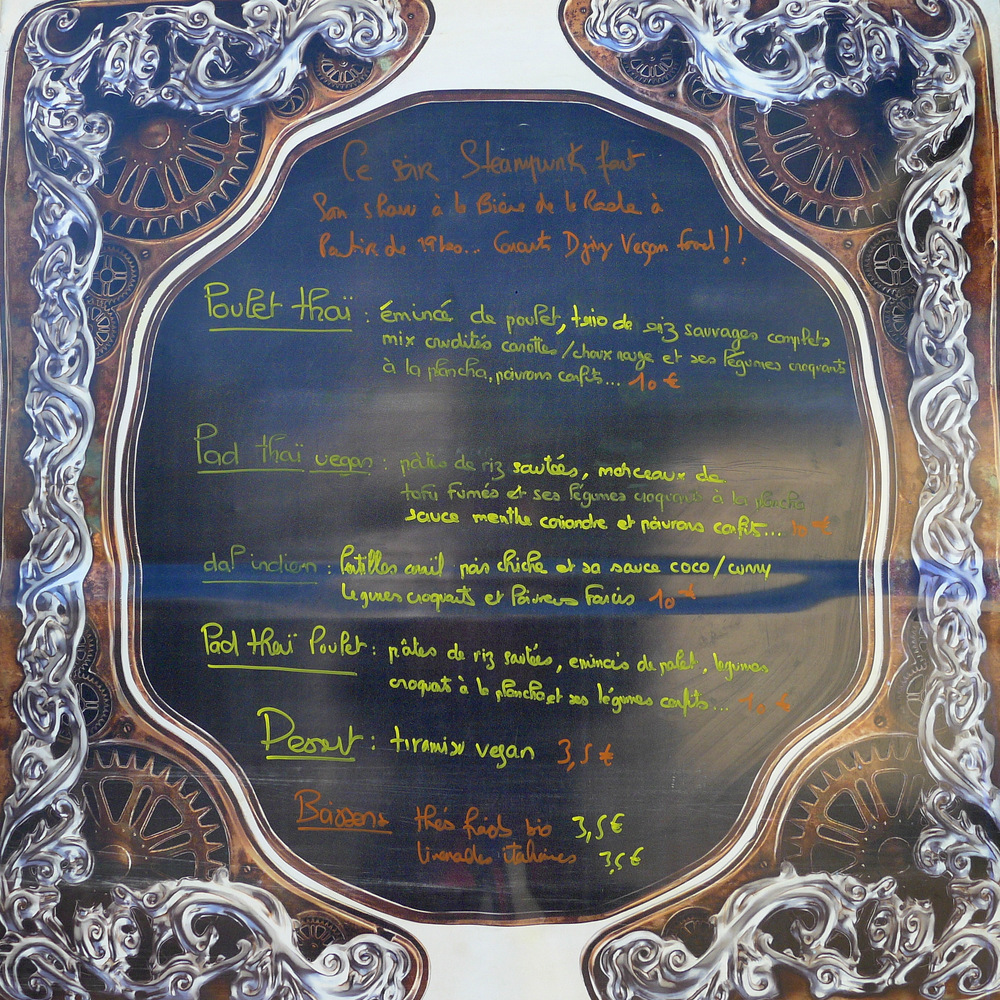 Ce soir Steampunk fort
Son show à la Bière de la Rade à
Partir de 19h00... Concert Vegan food!!
Poulet thaï : émincé de poulet, trio de riz sauvages complets
mix crudités carottes/choux rouge et ses légumes croquants
à la plancha, poivrons confits... 10 €
Pad thaï vegan : pâtes de riz sautées, morceaux de
tofu fumés et ses légumes croquants à la plancha
sauce menthe coriandre et poivrons confits... 10 €
dal indien : lentilles corail pois chiche et sa sauce coco/curry
légumes croquants et Poivrons Farcis 10 €
Pad thaï Poulet : pâtes de riz sautées, émincés de poulet, légumes
croquant à la plancha et ses légumes confits... 10 €
Dessert : tiramisu vegan 3,5 €
Boissons thés froids bio 3,5 €
limonades italiennes 3,5 €